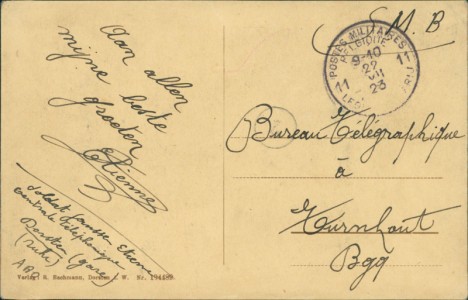 Aan allen
mijne beste
groeten
Etienne
Soldat Etienne
centrale téléphonique
Dorsten (gare)
(ruhr)
A B
Verlag: S. Bachmann, Dorsten i. W. Nr. 194489.
S. M. B
POSTES MILITAIRES
11 11
9-10
22
VII
23
Bureau Télégraphique
à
Turnhout
Bgq